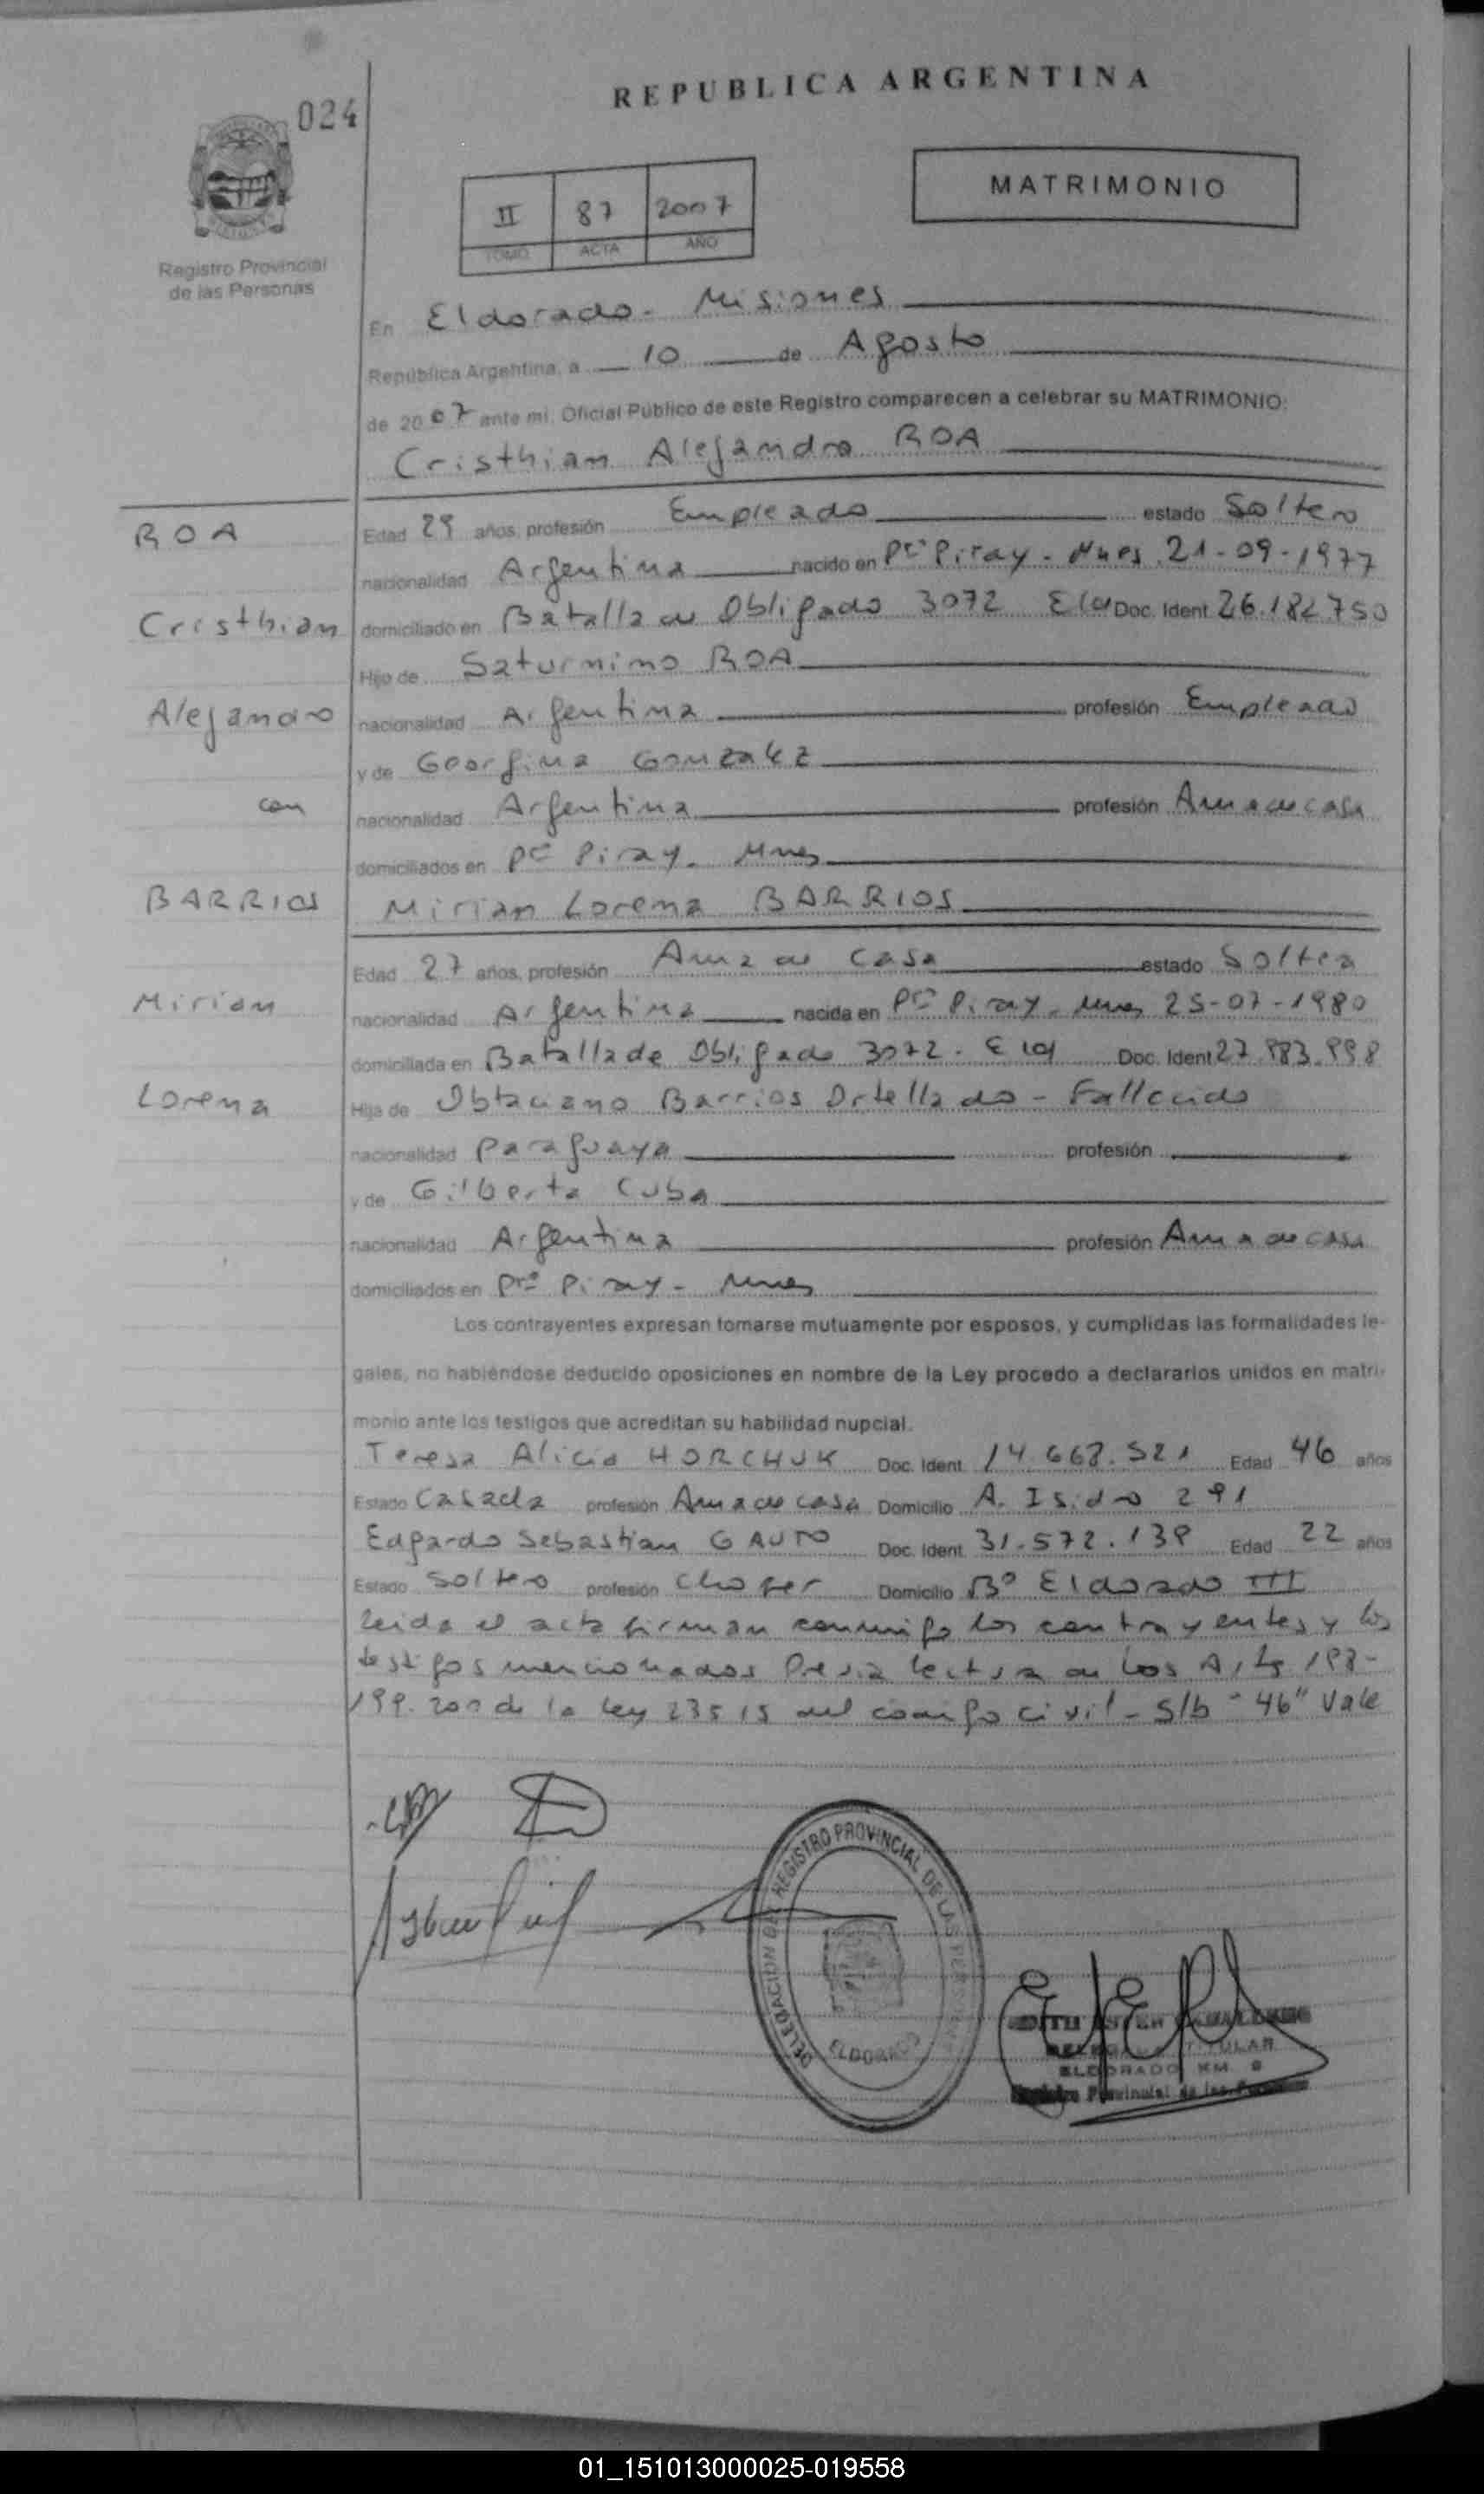 024
REPUBLICA ARGENTINA
MATRIMONIO
II 87 2007
TOMO ACTA AÑO
Registro Provincial
de las Personas
En Eldorado - Misiones
República Argentina, a 10 de Agosto
de 2007 ante mi, Oficial Público de este Registro comparecen a celebrar su MATRIMONIO:
Cristhian Alejandro ROA
ROA
Cristhian
Alejandro
con
BARRIOS
Mirian
Lorena
Edad 29 años, profesión Empleado estado Soltero
nacionalidad Argentina nacido en Pto Piray - Mnes 21-09-1977
domiciliado en Batalla de Obligado 3072 Eld Doc. Ident 26.182.750
Hijo de Saturnino ROA
nacionalidad Argentina profesión Empleado
y de Georgina Gonzalez
nacionalidad Argentina profesión Ama de casa
domiciliados en Pto Piray - Mnes
Mirian Lorena BARRIOS
Edad 27 años, profesión Ama de casa estado Soltera
nacionalidad Argentina nacida en Pto Piray - Mnes 25-07-1980
domiciliada en Batalla de Obligado 3072 - Eld Doc. Ident 27.883.998
Hija de Obtaciano Barrios Ortellado - Fallecido
nacionalidad Paraguaya profesión
y de Gilberta Cuba
nacionalidad Argentina profesión Ama de casa
domiciliados en Pto Piray - Mnes
Los contrayentes expresan tomarse mutuamente por esposos, y cumplidas las formalidades le-
gales, no habiéndose deducido oposiciones en nombre de la Ley procedo a declararlos unidos en matri-
monio ante los testigos que acreditan su habilidad nupcial.
Teresa Alicia HORCHUK Doc. Ident. 14.668.521 Edad 46 años
Estado Casada profesión Ama de casa Domicilio A. Isidro 291
Edgardo Sebastian GAUTO Doc. Ident. 31.572.139 Edad 22 años
Estado Soltero profesión Chofer Domicilio Bº Eldorado III
leida el acta firman conmigo los contrayentes y los
testigos mencionados Previa lectura de los Arts 198-
199-200 de la Ley 23515 del codigo civil - S/b "46" Vale
DELEGACION DEL REGISTRO PROVINCIAL DE LAS PERSONAS
ELDORADO
TITULAR
ELDORADO KM. 9
Registro Provincial de las Personas
01_151013000025-019558